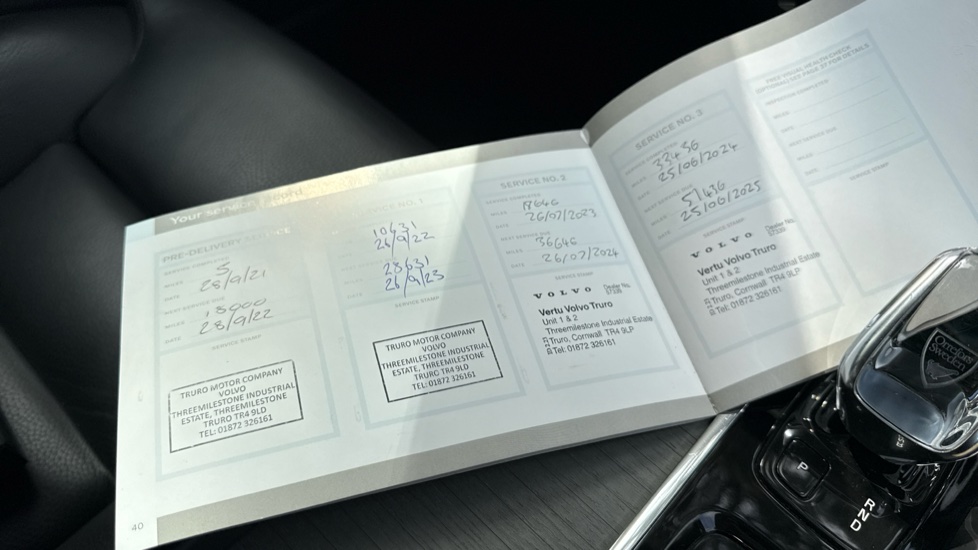 Your service record
PRE-DELIVERY SERVICE
SERVICE COMPLETED
MILES 5
DATE 28/9/21
NEXT SERVICE DUE
MILES 18000
DATE 28/9/22
SERVICE STAMP
TRURO MOTOR COMPANY
VOLVO
THREEMILESTONE INDUSTRIAL
ESTATE, THREEMILESTONE
TRURO TR4 9LD
TEL: 01872 326161
SERVICE NO. 1
10631
26/9/22
28631
26/9/23
SERVICE STAMP
TRURO MOTOR COMPANY
VOLVO
THREEMILESTONE INDUSTRIAL
ESTATE, THREEMILESTONE
TRURO TR4 9LD
TEL: 01872 326161
SERVICE NO. 2
SERVICE COMPLETED
MILES 18646
DATE 26/07/2023
NEXT SERVICE DUE
MILES 36646
DATE 26/07/2024
SERVICE STAMP
VOLVO Dealer No.
Vertu Volvo Truro
Unit 1 & 2
Threemilestone Industrial Estate
Truro, Cornwall TR4 9LP
Tel: 01872 326161
SERVICE NO. 3
SERVICE COMPLETED
MILES 33436
DATE 25/06/2024
NEXT SERVICE DUE
MILES 51436
DATE 25/06/2025
SERVICE STAMP
VOLVO Dealer No.
Vertu Volvo Truro
Unit 1 & 2
Threemilestone Industrial Estate
Truro, Cornwall TR4 9LP
Tel: 01872 326161
FREE VISUAL HEALTH CHECK
(OPTIONAL) SEE PAGE 37 FOR DETAILS
INSPECTION COMPLETED
MILES
DATE
NEXT SERVICE DUE
MILES
DATE
SERVICE STAMP
40
Orrefors
Sweden
P
R
N
D